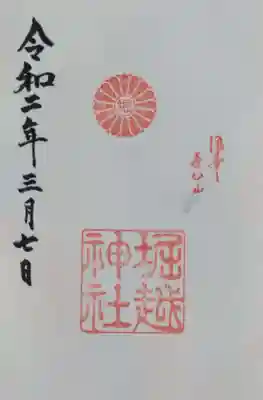 堀越
神社
令和二年三月七日